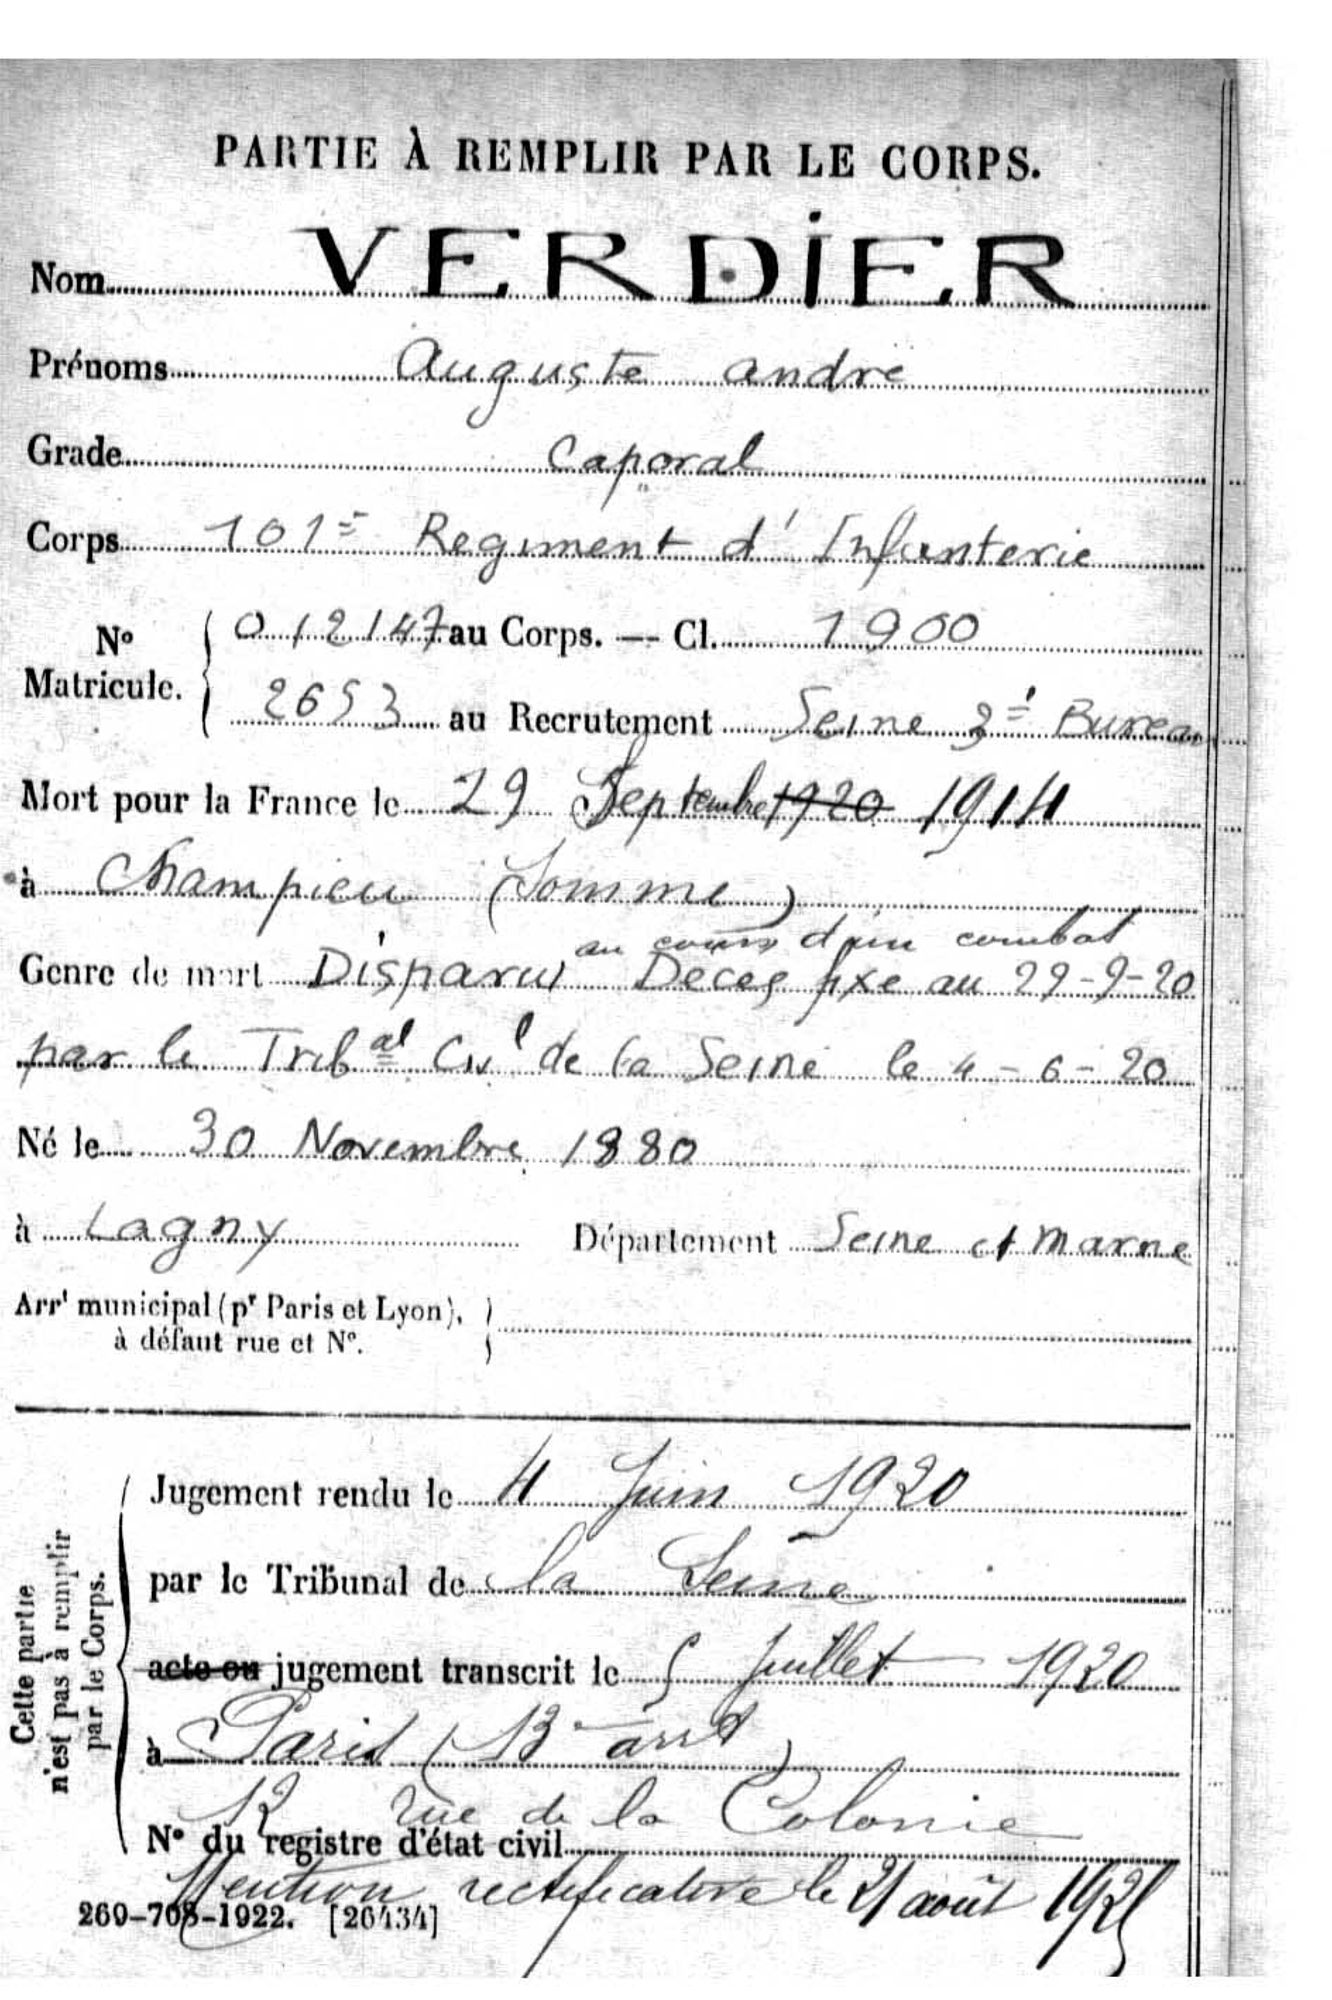 PARTIE À REMPLIR PAR LE CORPS.
Nom VERDIER
Prénoms Auguste andré
Grade Caporal
Corps 101e Regiment d'Infanterie
No Matricule. { 012147 au Corps. — Cl. 1900
2653 au Recrutement Seine 3e Bureau
Mort pour la France le 29 Septembre 1920 1914
à Champieu (Somme)
au cours d'un combat
Genre de mort Disparu Deces fixe au 29-9-20
par le Tribal Civl de la Seine le 4-6-20
Né le 30 Novembre 1880
à Lagny Département Seine et Marne
Arrt municipal (pr Paris et Lyon),
à défaut rue et No.
Cette partie
n'est pas à remplir
par le Corps.
Jugement rendu le 4 Juin 1920
par le Tribunal de la Seine
acte ou jugement transcrit le 5 Juillet 1920
à Paris (13e arrt)
12 rue de la Colonie
No du registre d'état civil
Mention rectificative le 21 août 1925
260-708-1922. [26434]